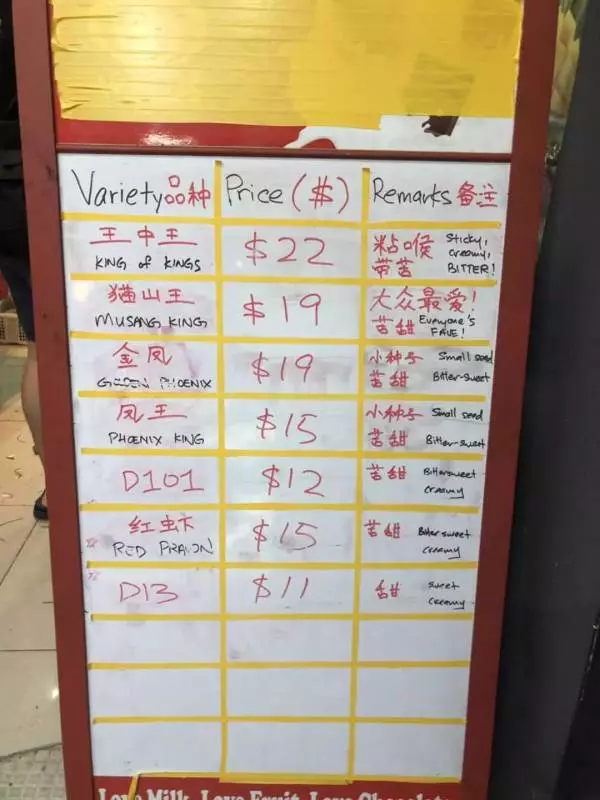 Variety品种 Price ($) Remarks 备注
王中王
KING of KINGS
$22
粘喉 Sticky,
creamy,
带苦 BITTER!
猫山王
MUSANG KING
$19
大众最爱!
苦甜 Everyone's
FAVE!
金凤
GOLDEN PHOENIX
$19
小种子 Small seed
苦甜 Bitter-Sweet
凤王
PHOENIX KING
$15
小种子 Small seed
苦甜 Bitter-sweet
D101
$12
苦甜 Bittersweet
creamy
红虾
RED PRAWN
$15
苦甜 Bitter sweet
creamy
D13
$11
甜 Sweet
creamy
Love Milk, Love Fruit, Love Chocolate